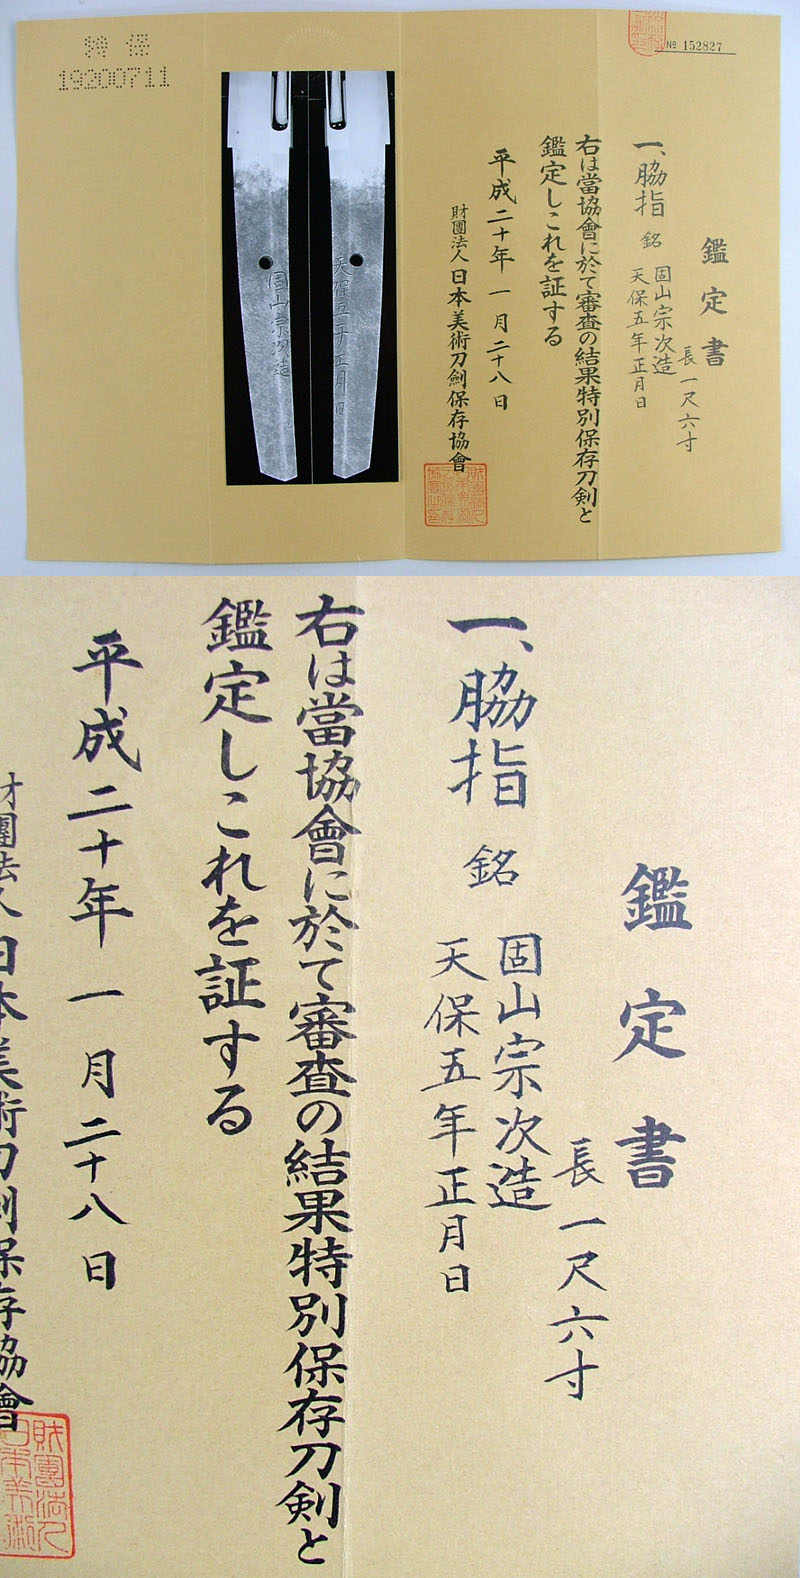 № 152827
鑑定書
長 一尺六寸
一、脇指 銘 固山宗次造
天保五年正月日
右は當協會に於て審査の結果特別保存刀剣と
鑑定しこれを証する
平成二十年一月二十八日
財團法人日本美術刀劍保存協會
天保五年正月日
固山宗次造
特保
19200711
鑑定書
長 一尺六寸
一、脇指 銘 固山宗次造
天保五年正月日
右は當協會に於て審査の結果特別保存刀剣と
鑑定しこれを証する
平成二十年一月二十八日
財團法人日本美術刀劍保存協會
財團法人
日本美術